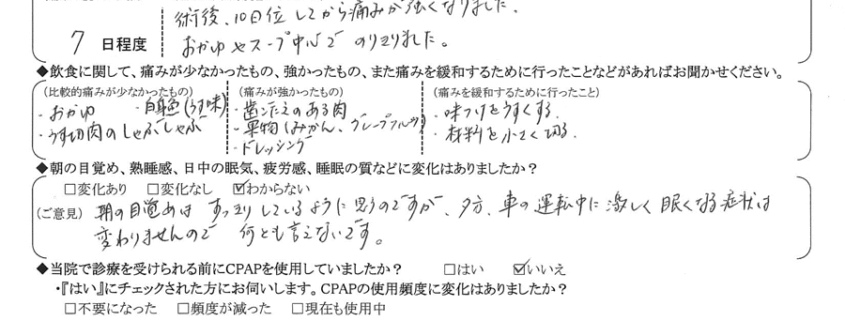 術後、10日位してから痛みが強くなりました。
7 日程度 おかゆやスープ中心で のりきりました。
◆飲食に関して、痛みが少なかったもの、強かったもの、また痛みを緩和するために行ったことなどがあればお聞かせください。
(比較的痛みが少なかったもの) (痛みが強かったもの) (痛みを緩和するために行ったこと)
・おかゆ ・白身魚(うす味) ・歯ごたえのある肉 ・味つけをうすくする。
・うす切肉のしゃぶしゃぶ ・果物(みかん、グレープフルーツ) ・材料を小さく切る。
・ドレッシング
◆朝の目覚め、熟睡感、日中の眠気、疲労感、睡眠の質などに変化はありましたか？
□変化あり □変化なし ☑わからない
(ご意見) 朝の目覚めは すっきりしているように思うのですが、夕方、車の運転中に激しく眠くなる症状は
変わりませんので 何とも言えないです。
◆当院で診療を受けられる前にCPAPを使用していましたか？ □はい ☑いいえ
・『はい』にチェックされた方にお伺いします。CPAPの使用頻度に変化はありましたか？
□不要になった □頻度が減った □現在も使用中